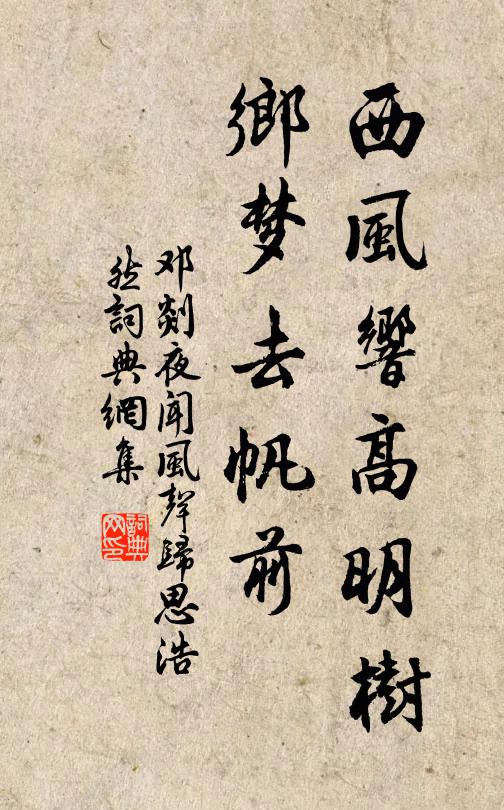 西風響高明樹
鄉梦去帆前
邓剡夜闻風聲歸思浩
然詞典網集
詞典
网印